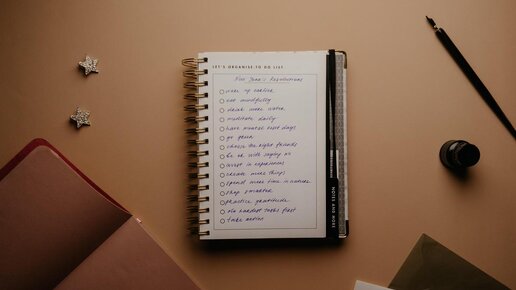 LET'S ORGANISE-TO DO LIST
New Year's Resolutions
wake up earlier
eat mindfully
drink more water
meditate daily
have more rest days
go green
choose the right friends
be ok with saying no
invest in experiences
create more things
spend more time in nature
shop smarter
practice gratitude
do hardest tasks first
take action
NOTES AND MORE